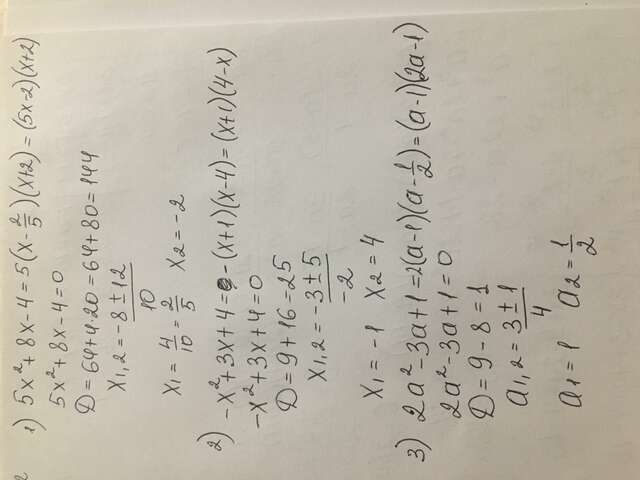 1) 5x² + 8x - 4 = 5(x - 2/5)(x+2) = (5x-2)(x+2)
5x² + 8x - 4 = 0
D = 64 + 4·20 = 64 + 80 = 144
x₁,₂ = (-8 ± 12)/10
x₁ = 4/10 = 2/5 x₂ = -2
2) -x² + 3x + 4 = -(x+1)(x-4) = (x+1)(4-x)
-x² + 3x + 4 = 0
D = 9 + 16 = 25
x₁,₂ = (-3 ± 5)/-2
x₁ = -1 x₂ = 4
3) 2a² - 3a + 1 = 2(a-1)(a - 1/2) = (a-1)(2a-1)
2a² - 3a + 1 = 0
D = 9 - 8 = 1
a₁,₂ = (3 ± 1)/4
a₁ = 1 a₂ = 1/2